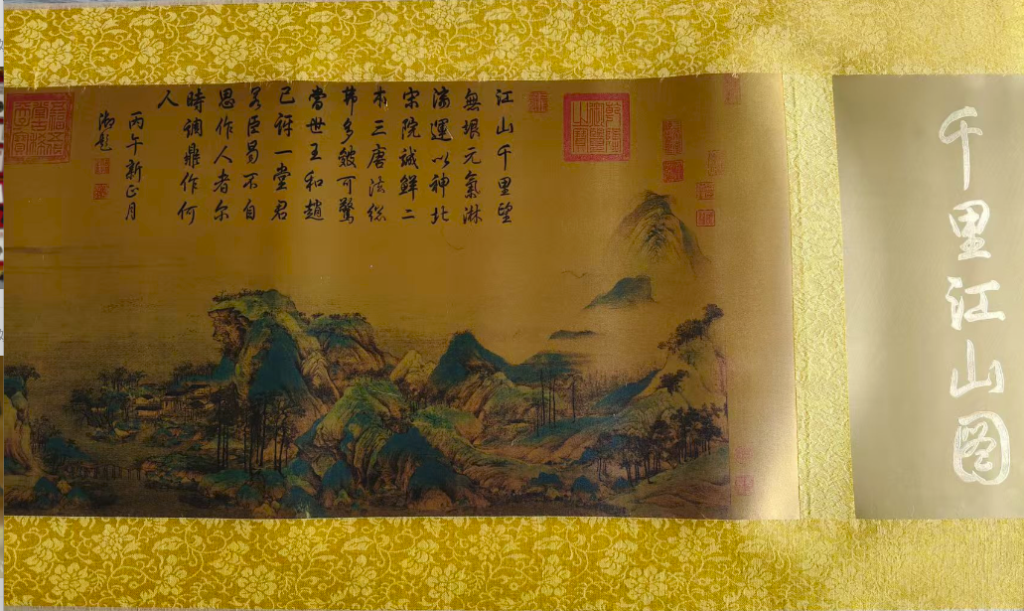 千里江山图
江山千里望
無垠元氣淋
漓運以神北
宋院誠鮮二
本三唐法総
弗多皴可驚
當世王和趙
已訝一堂君
若臣曷不自
思作人者尔
時調鼎作何
人
丙午新正月
御題